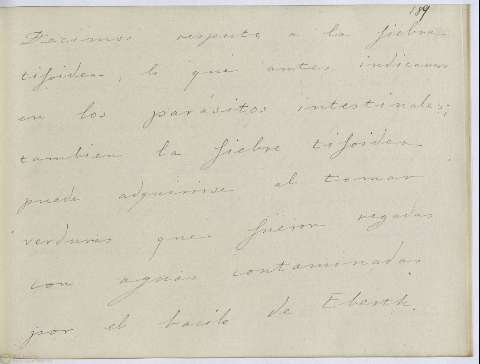 189
Decimos respecto a la fiebre
tifoidea, lo que antes indicamos
en los parásitos intestinales;
tambien la fiebre tifoidea
puede adquirirse al tomar
verduras que fueron regadas
con aguas contaminadas
por el bacilo de Eberth.